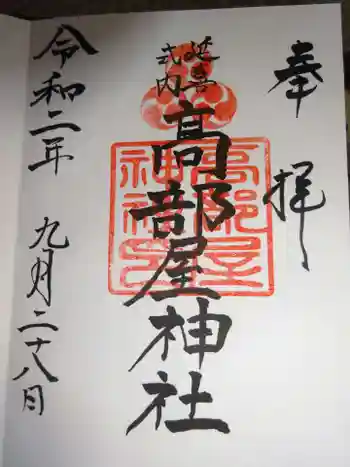 奉拝
延喜
式内
高部屋神社
高部屋
神社
令和二年 九月二十八日